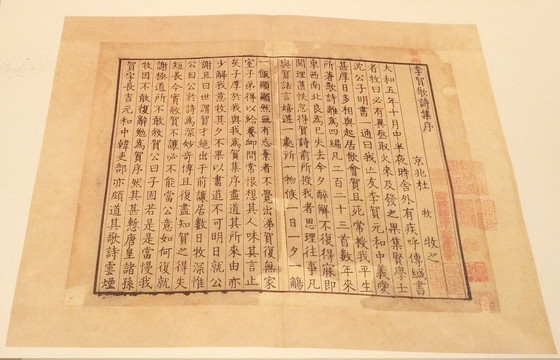 李賀歌詩集序
京兆杜 牧 牧之
大和五年十月中半夜時舍外有疾呼傳緘書
者牧曰必有異亟取火來及發之果集賢學士
沈公子明書一通曰我亡友李賀元和中義愛
甚厚日夕相與起居飲食賀且死常授我平生
所著歌詩離為四編凡二百二十三首數年來
東西南北良為已失去今夕醉解不復得寐即
閱理篋帙忽得賀詩前所授我者思理往事凡
與賀話言嬉遊一處所一物候一日夕一觴
一飯顯顯然無有忘棄者不覺出涕賀復無家
室子弟得以給養卹問常恨想其人味其言止
矣子厚於我與我為賀集序盡道其所來由亦
少解我意牧其夕不果以書道不可明日就公
謝且曰世謂賀才絕出於前讓居數日牧深惟
公曰公於詩為深妙奇博且復盡知賀之得失
短長今實敘賀不讓必不能當公意如何復就
謝極道所不敢敘賀公曰子固若是是當慢我
牧因不敢復辭勉為賀序然其甚慙唐皇諸孫
賀字長吉元和中韓吏部亦頗道其歌詩雲煙